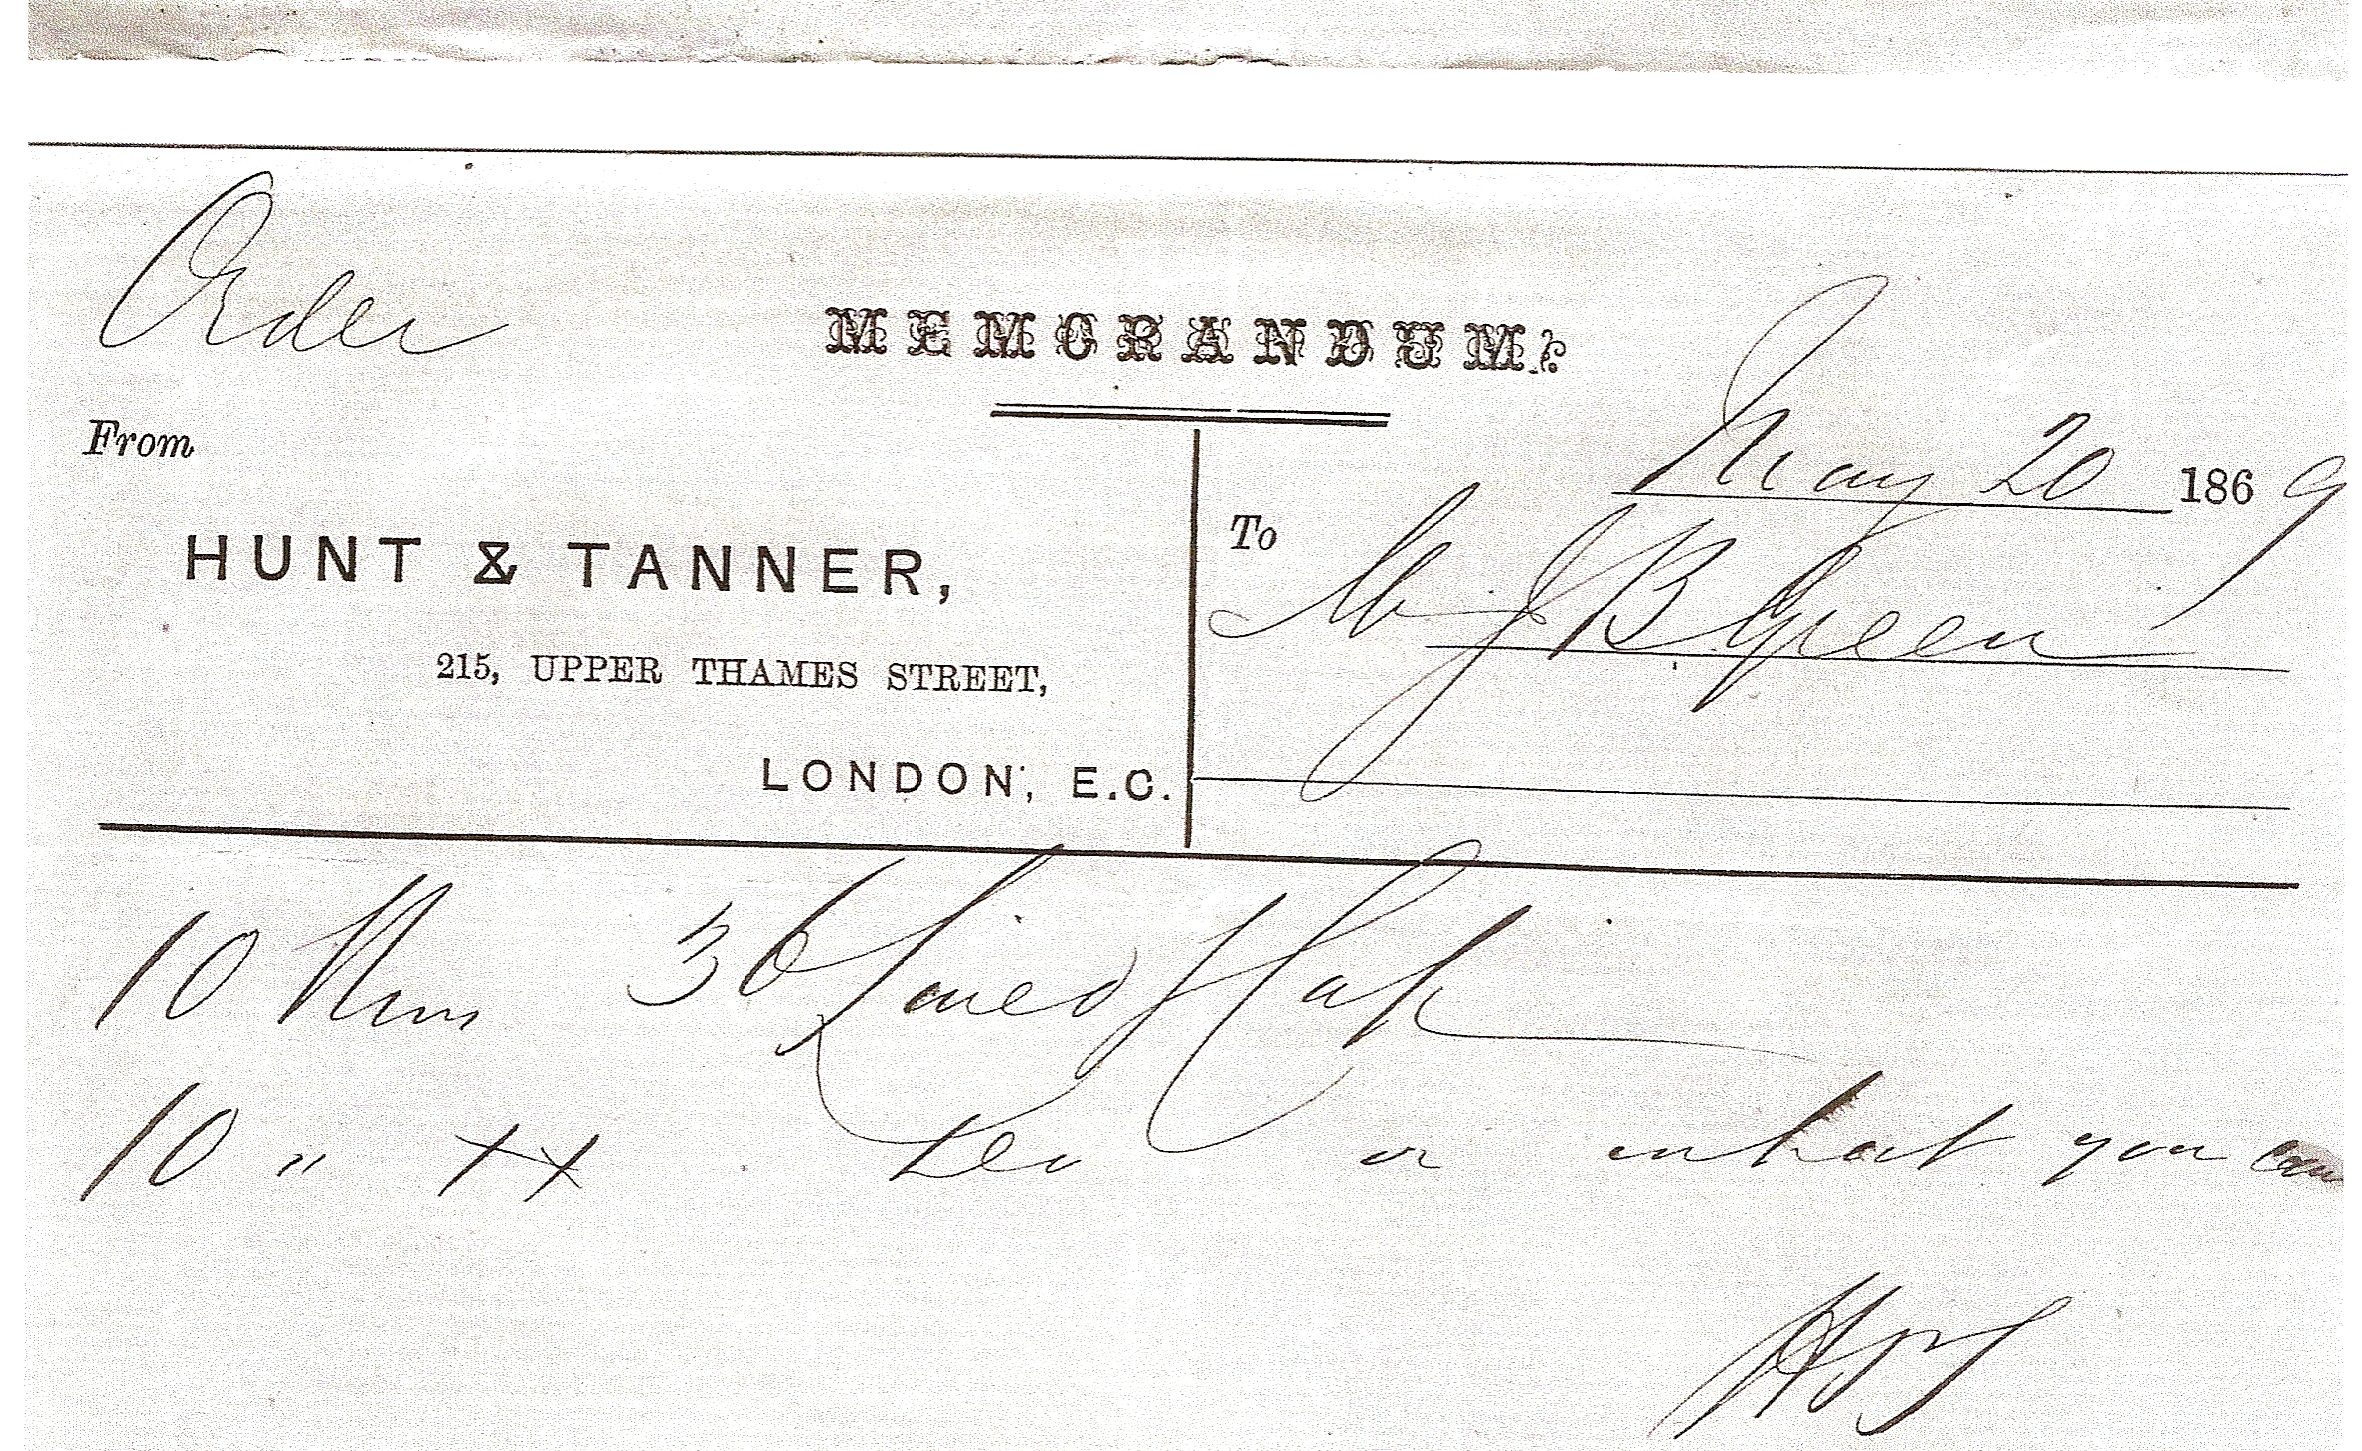 Order
MEMORANDUM.
From
May 20 1869
HUNT & TANNER,
To Mr J B Green
215, UPPER THAMES STREET,
LONDON, E.C.
10 Rms 36 Lined
10 " XX Do or what you can